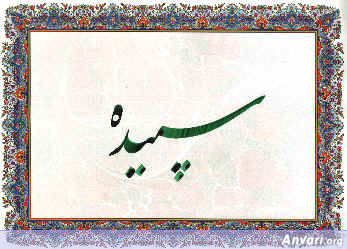 سپیده
Anvari.org